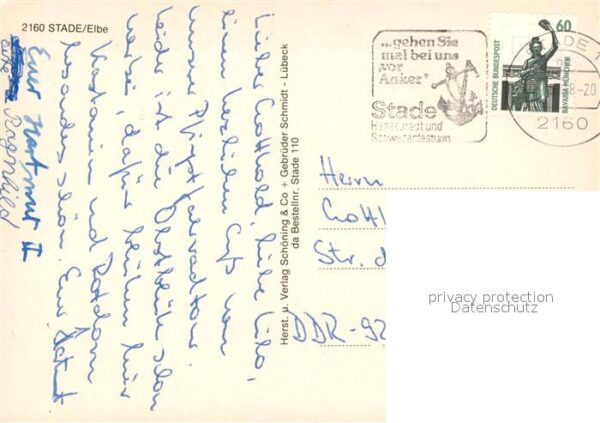 2160 STADE/Elbe
Lieber Gotthold, liebe Lilo,
einen herzlichen Gruß von
unserer Pfingstfahrradtour.
Leider ist die Obstblüte schon
vorbei, dafür blühen hier
Kastanien und Rotdorn
besonders schön. Eure
Euer Hartmut II
Herst. u. Verlag Schöning & Co + Gebrüder Schmidt - Lübeck
da Bestellnr. Stade 110
...gehen Sie
mal bei uns
vor
Anker'
Stade
Hansestadt und
Schwedenfestung
60
DEUTSCHE BUNDESPOST
BAVARIA MÜNCHEN
STADE 1
8-20
2160
Herrn
Gotth
Str. d
DDR-92
privacy protection
Datenschutz